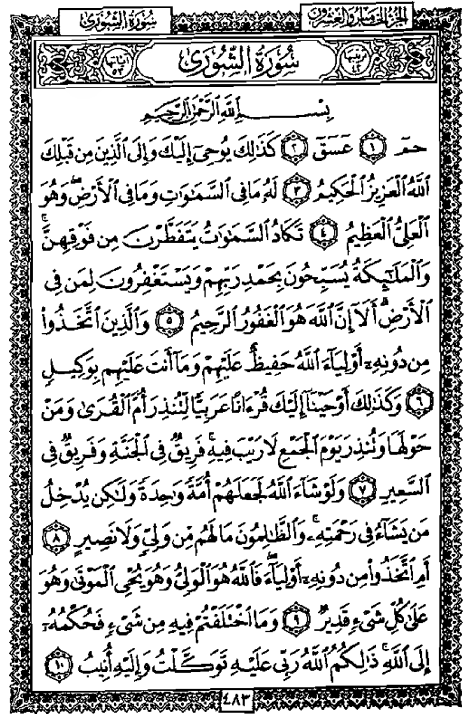 سورة الشورى
الجزء الخامس والعشرون
ترتيبها ٤٢
سُورَةُ الشُّورَىٰ
آياتها ٥٣
بِسْمِ اللَّهِ الرَّحْمَٰنِ الرَّحِيمِ
حمٓ ١ عٓسٓقٓ ٢ كَذَٰلِكَ يُوحِىٓ إِلَيْكَ وَإِلَى ٱلَّذِينَ مِن قَبْلِكَ
ٱللَّهُ ٱلْعَزِيزُ ٱلْحَكِيمُ ٣ لَهُۥ مَا فِى ٱلسَّمَٰوَٰتِ وَمَا فِى ٱلْأَرْضِ ۖ وَهُوَ
ٱلْعَلِىُّ ٱلْعَظِيمُ ٤ تَكَادُ ٱلسَّمَٰوَٰتُ يَتَفَطَّرْنَ مِن فَوْقِهِنَّ ۚ
وَٱلْمَلَٰٓئِكَةُ يُسَبِّحُونَ بِحَمْدِ رَبِّهِمْ وَيَسْتَغْفِرُونَ لِمَن فِى
ٱلْأَرْضِ ۗ أَلَآ إِنَّ ٱللَّهَ هُوَ ٱلْغَفُورُ ٱلرَّحِيمُ ٥ وَٱلَّذِينَ ٱتَّخَذُوا۟
مِن دُونِهِۦٓ أَوْلِيَآءَ ٱللَّهُ حَفِيظٌ عَلَيْهِمْ وَمَآ أَنتَ عَلَيْهِم بِوَكِيلٍ
٦ وَكَذَٰلِكَ أَوْحَيْنَآ إِلَيْكَ قُرْءَانًا عَرَبِيًّا لِّتُنذِرَ أُمَّ ٱلْقُرَىٰ وَمَنْ
حَوْلَهَا وَتُنذِرَ يَوْمَ ٱلْجَمْعِ لَا رَيْبَ فِيهِ ۚ فَرِيقٌ فِى ٱلْجَنَّةِ وَفَرِيقٌ فِى
ٱلسَّعِيرِ ٧ وَلَوْ شَآءَ ٱللَّهُ لَجَعَلَهُمْ أُمَّةً وَٰحِدَةً وَلَٰكِن يُدْخِلُ
مَن يَشَآءُ فِى رَحْمَتِهِۦ ۚ وَٱلظَّٰلِمُونَ مَا لَهُم مِّن وَلِىٍّ وَلَا نَصِيرٍ ٨
أَمِ ٱتَّخَذُوا۟ مِن دُونِهِۦٓ أَوْلِيَآءَ ۖ فَٱللَّهُ هُوَ ٱلْوَلِىُّ وَهُوَ يُحْىِ ٱلْمَوْتَىٰ وَهُوَ
عَلَىٰ كُلِّ شَىْءٍ قَدِيرٌ ٩ وَمَا ٱخْتَلَفْتُمْ فِيهِ مِن شَىْءٍ فَحُكْمُهُۥٓ
إِلَى ٱللَّهِ ۚ ذَٰلِكُمُ ٱللَّهُ رَبِّى عَلَيْهِ تَوَكَّلْتُ وَإِلَيْهِ أُنِيبُ ١٠
٤٨٣